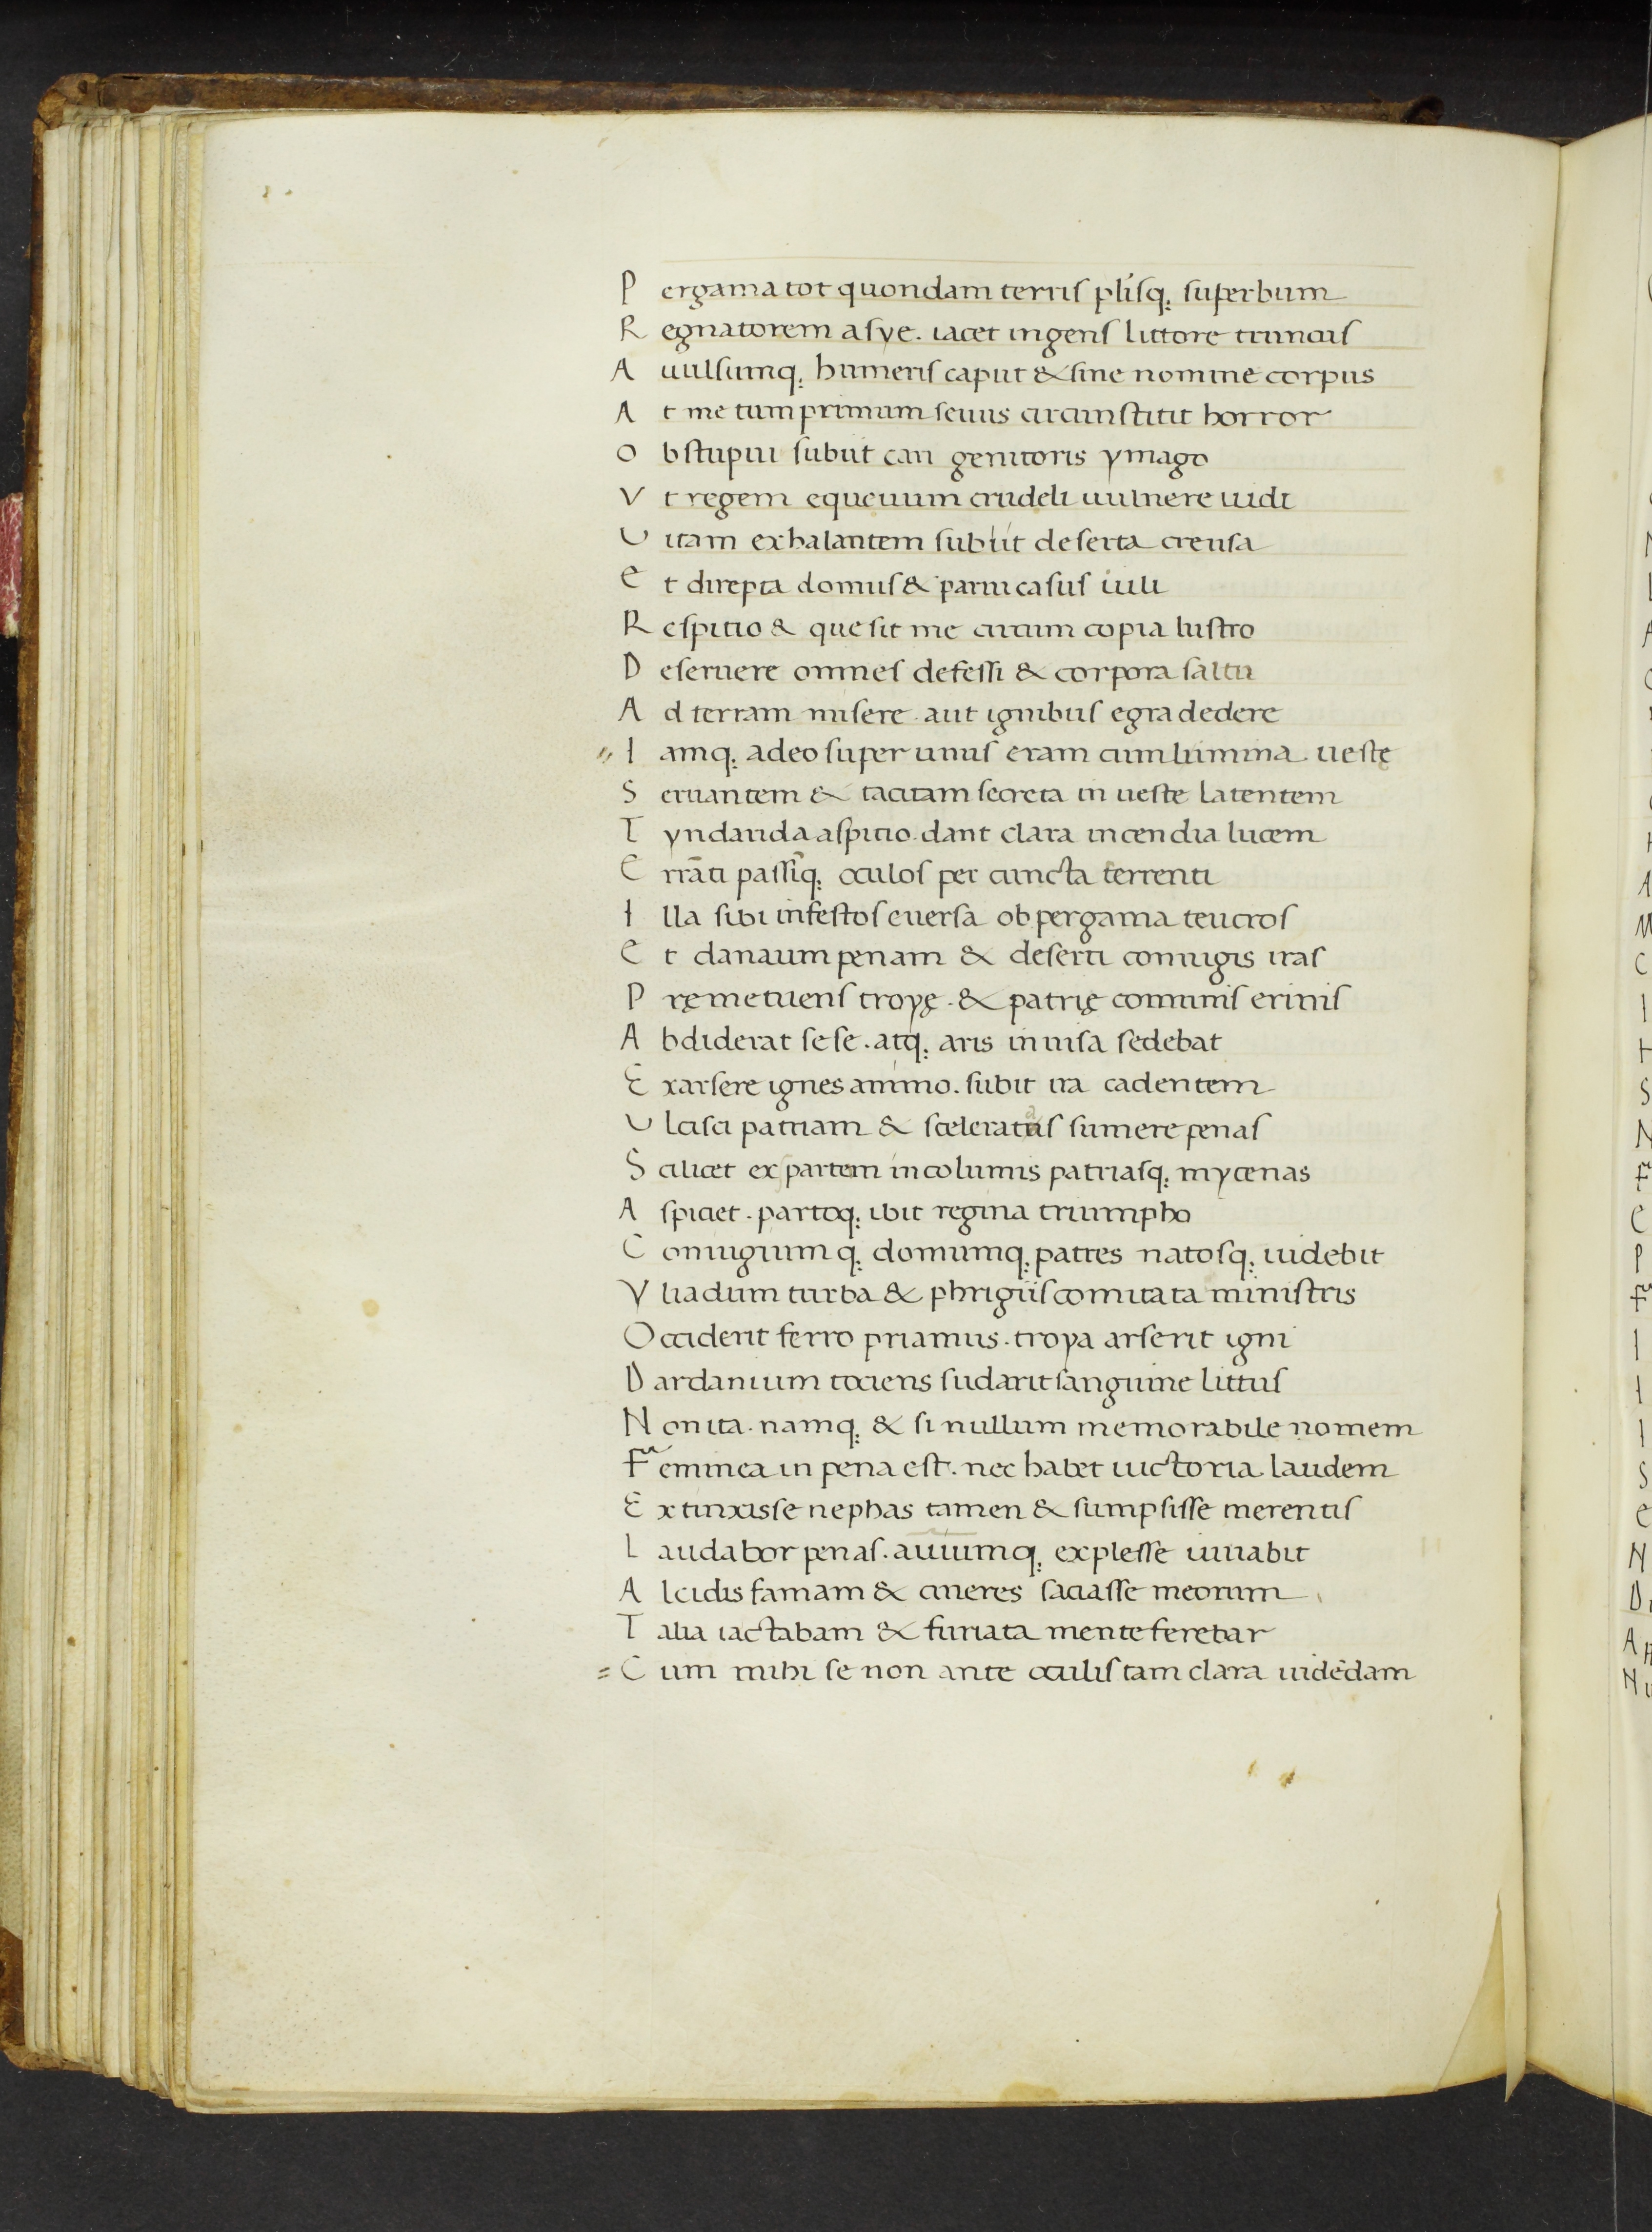 P ergama tot quondam terris pli̅sq; superbum
R egnatorem asye. iacet ingens littore truncus
A uulsumq; humeris caput & sine nomine corpus
A t me tum primum seuus circunstitit horror
O bstupui subiit cari genitoris ymago
V t regem equeuum crudeli uulnere uidi
U itam exhalantem subiit deserta creusa
E t direpta domus & parui casus iuli
R espitio & que sit me circum copia lustro
D eseruere omnes defessi & corpora saltu
A d terram misere. aut ignibus egra dedere
I amq; adeo super unus eram cum lumina uestę
S eruantem & tacitam secreta in ueste latentem
T yndarida aspitio. dant clara incendia lucem
E rrāti passi̅q; oculos per cuncta ferrenti
I lla sibi infestos euersa ob pergama teucros
E t danaum penam & deserti coniugis iras
P ręmetuens troyę. & patrię comunis erinis
A bdiderat sese. atq; aris inuisa sedebat
E xarsere ignes animo. subit ira cadentem
U lcisci patriam & sceleratas sumere penas
S cilicet ex partem incolumis patriasq; mycenas
A spiciet. partoq; ibit regina triumpho
C oniugiumq; domumq; patres natosq; uidebit
Y liadum turba & phrigiis comitata ministris
O cciderit ferro priamus. troya arserit igni
D ardanium tociens sudarit sanguine littus
N on ita. namq; & si nullum memorabile nomem
F eminea in pena est. nec habet uictoria laudem
E xtinxisse nephas tamen & sumpsisse merentis
L audabor penas. auiumq; explesse iuuabit
A lcidis famam & cineres saciasse meorum
T alia iactabam & furiata mente ferebar
= C um mihi se non ante oculis tam clara uidēdam